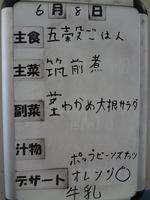 6月8日
主食 五穀ごはん
主菜 筑前煮
副菜 茎わかめ大根サラダ
汁物
ポップビーンズカッツ
デザート オレンジ○
牛乳